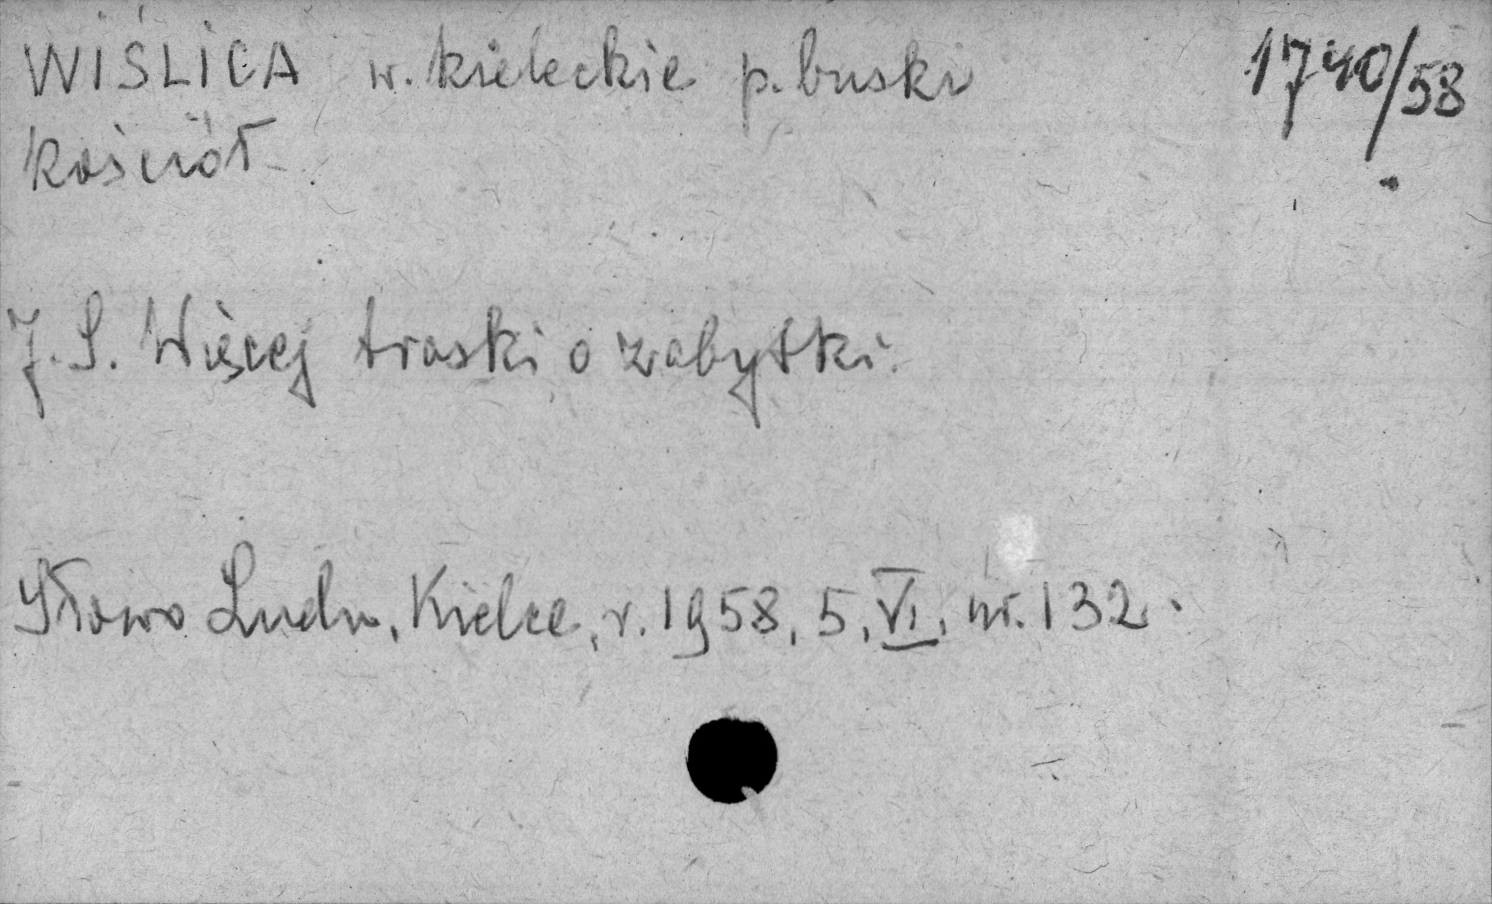 WIŚLICA w. kieleckie p. buski 1740/58
kościół
J. S. Więcej troski o zabytki.
Słowo Ludu, Kielce, r. 1958, 5, VI, nr. 132.